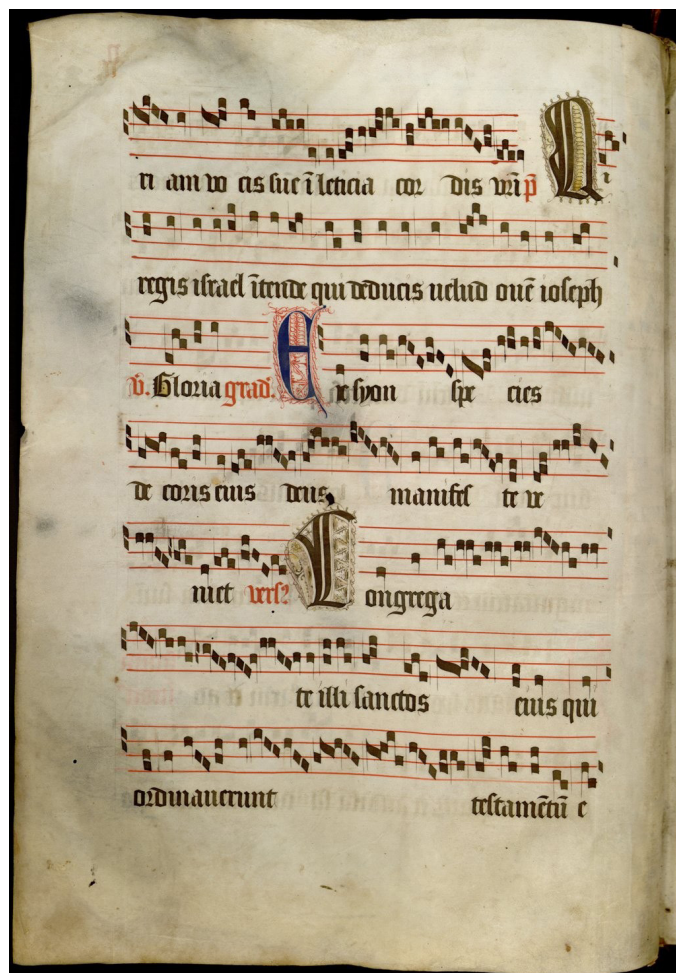 ri am vo cis sue ī leticia cor dis vr̄i p̄ Qui
regis israel ītende qui deducis uelud ouē ioseph
v̄. Gloria grad̄. Ex syon spe cies
de coris eius deus manifes te ve
niet vers9 Congrega
te illi sanctos eius qui
ordinauerunt testamētū e